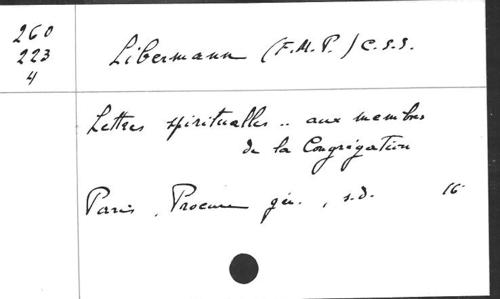 260
223
4
Libermann (F.M.P.) C.S.S.
Lettres spirituelles .. aux membres
de la Congrégation
Paris, Procure gén., s.d. 16